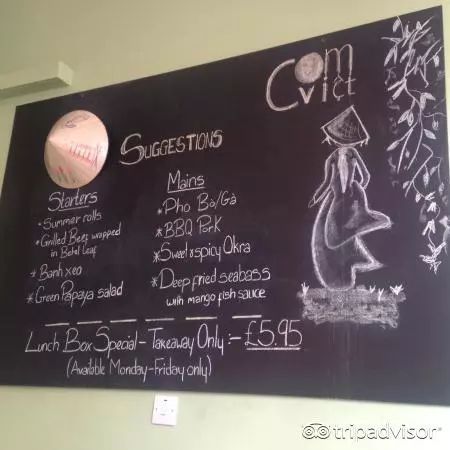 Com
Viet
SUGGESTIONS
Starters
* Summer rolls
* Grilled Beef wrapped
in Betel Leaf
* Banh xeo
* Green Papaya salad
Mains
* Pho Bò/Gà
* BBQ Pork
* Sweet & spicy Okra
* Deep fried seabass
with mango fish sauce
LUNCH BOX SPECIAL - TAKEAWAY ONLY :- £5.95
(Available Monday-Friday only)
tripadvisor